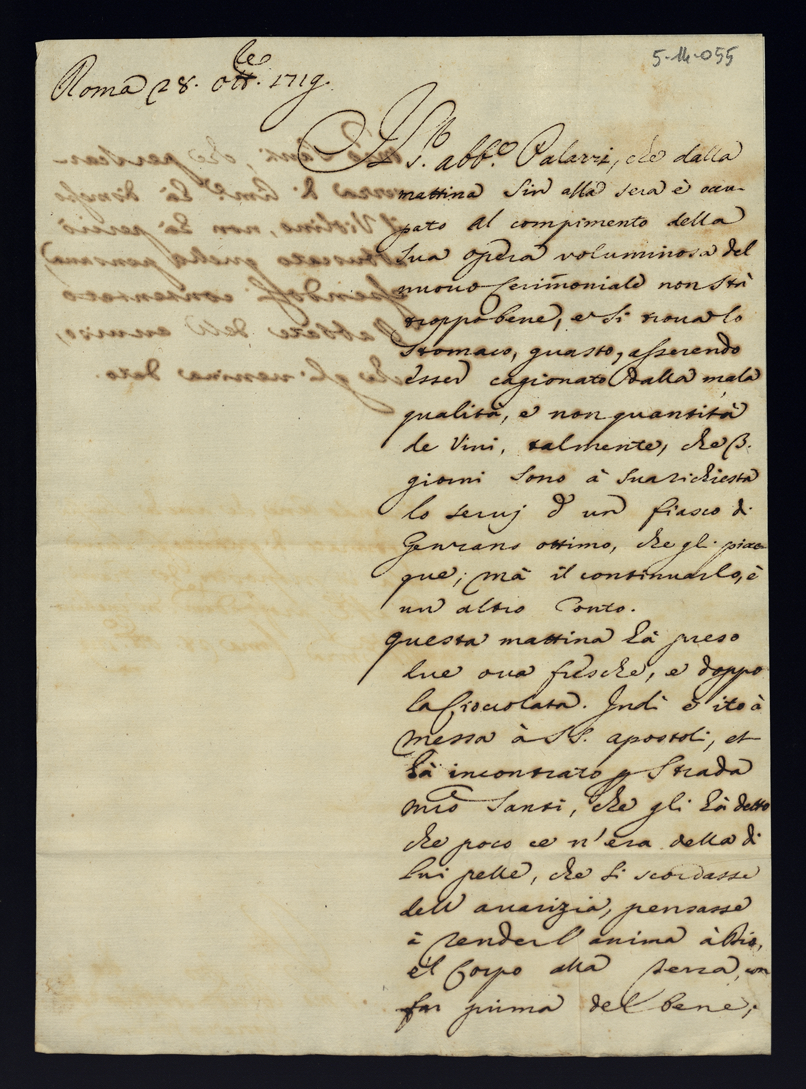 5-14-055
Roma 28. ott.re 1719.
Il S.r abb.e Palazzi, che dalla
mattina sin alla sera è occu-
pato al compimento della
sua opera voluminosa del
nuovo Cerimoniale non stà
troppo bene, e si troua lo
stomaco, guasto, asserendo
esser cagionato dalla mala
qualità, e non quantità
de Vini, talmente, che 3.
giorni sono à sua richiesta
lo seruj d'un fiasco di
Genzano ottimo, che gli piac-
que; mà il continuarlo, è
un altro Conto.
questa mattina hà preso
due oua fresche, e doppo
la Cioccolata. Indi è ito à
messa à SS. apostoli, et
hà incontrato p strada
Santi, che gli hà detto
che poco ce n'era della di
lui pelle, che si scordasse
dell auarizia, pensasse
à render l'anima à Dio,
e'l Corpo alla terra, con
far prima del bene;